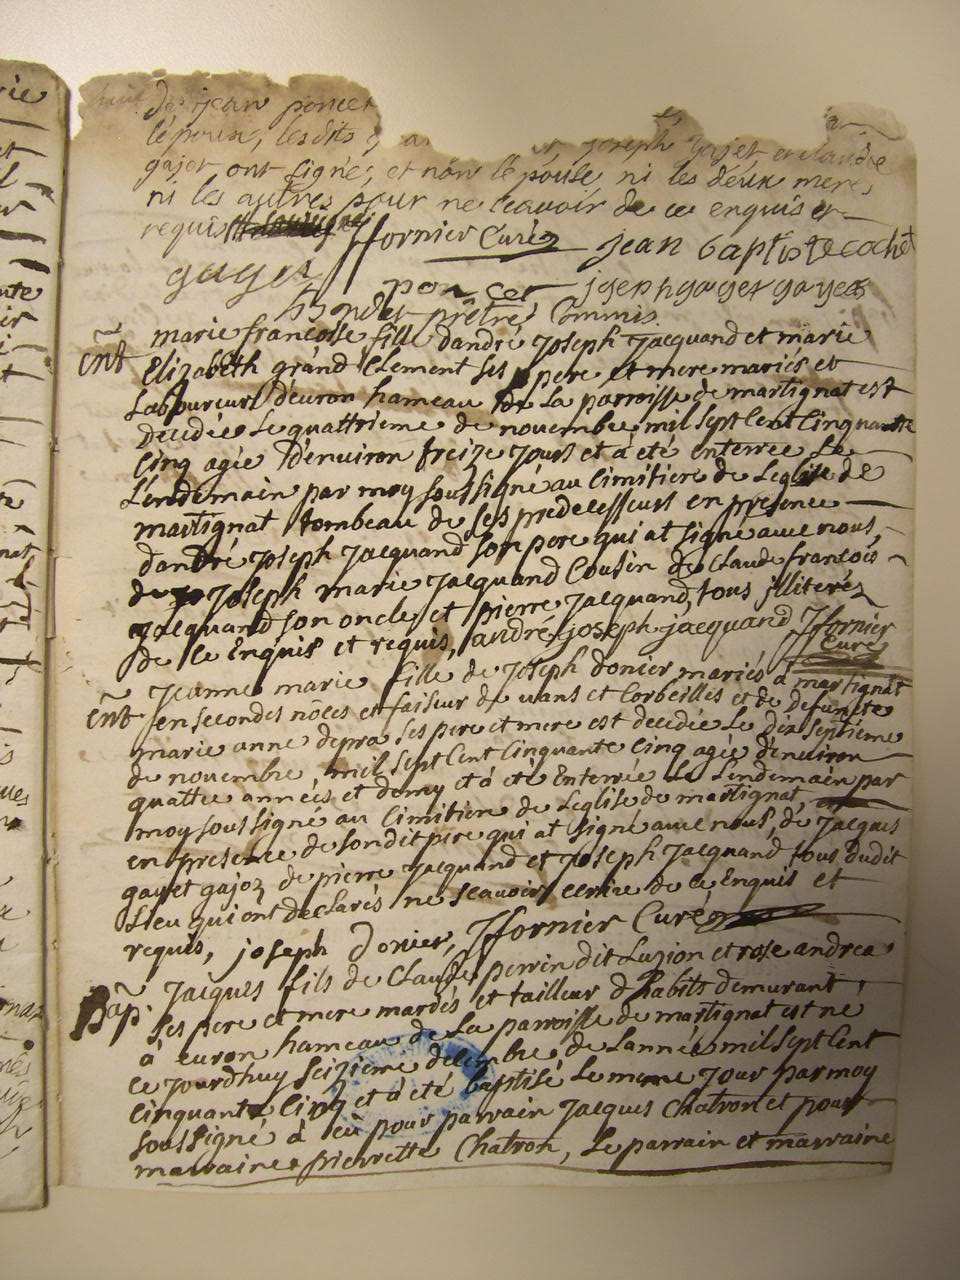 de jean poncet
l'époux, les dits joseph gajet et claude
gajet ont signés, et non l'epouse ni les deux meres
ni les autres pour ne sçavoir de ce enquis et
requis ffornier Curé jean baptiste cochet
gayet poncet joseph gayet gayet
prêtre Commis
ent marie françoise fille dandré Joseph Jacquand et marie
Elizabeth grand Clement ses pere et mere mariés et
Laboureurs d'euron hameau de La parroisse de martignat est
decedée Le quattrieme de novembre mil sept Cent Cinquante
Cinq agée d'environ treize jours et à été enterrée Le
Lendemain par moy soussigné au Cimitiere de Leglise de
martignat tombeau de ses predecesseurs en presence
dandré Joseph Jacquand son pere qui at signé avec nous,
de Joseph marie Jacquand Cousin de Claude françois
Jacquand son oncle et pierre Jacquand, tous illiterés
de ce Enquis et requis, andré joseph jacquand ffornier
Curé
ent Jeanne marie fille de Joseph donier mariés à martignat
en secondes nôces et faiseur de vans et Corbeilles et de defuncte
marie anne depra ses pere et mere est decedée Le dix septieme
de novembre, mil sept Cent Cinquante Cinq agée denviron
quattre années et demy et à été Enterrée Le Lendemain par
moy soussigné au Cimitiere de Leglise de martignat
en presence de son dit pere qui at signé avec nous, de Jacques
gayet gajoz de pierre Jacquand et Joseph Jacquand tous dudit
Lieu qui ont declarés ne scavoir ecrire de ce Enquis et
requis, joseph donier, ffornier Curé
Bap. Jacques fils de Claude perrin dit Luzion et rose andrea
ses pere et mere mariés et tailleur d'habits demurant
à euron hameau de La parroisse de martignat est né
ce jourdhuy seizieme decembre de Lannée mil sept Cent
Cinquante Cinq et à été baptisé Le meme Jour par moy
soussigné à eû pour parrain Jacques Chatron et pour
marraine pierrette Chatron, Le parrain et marraine